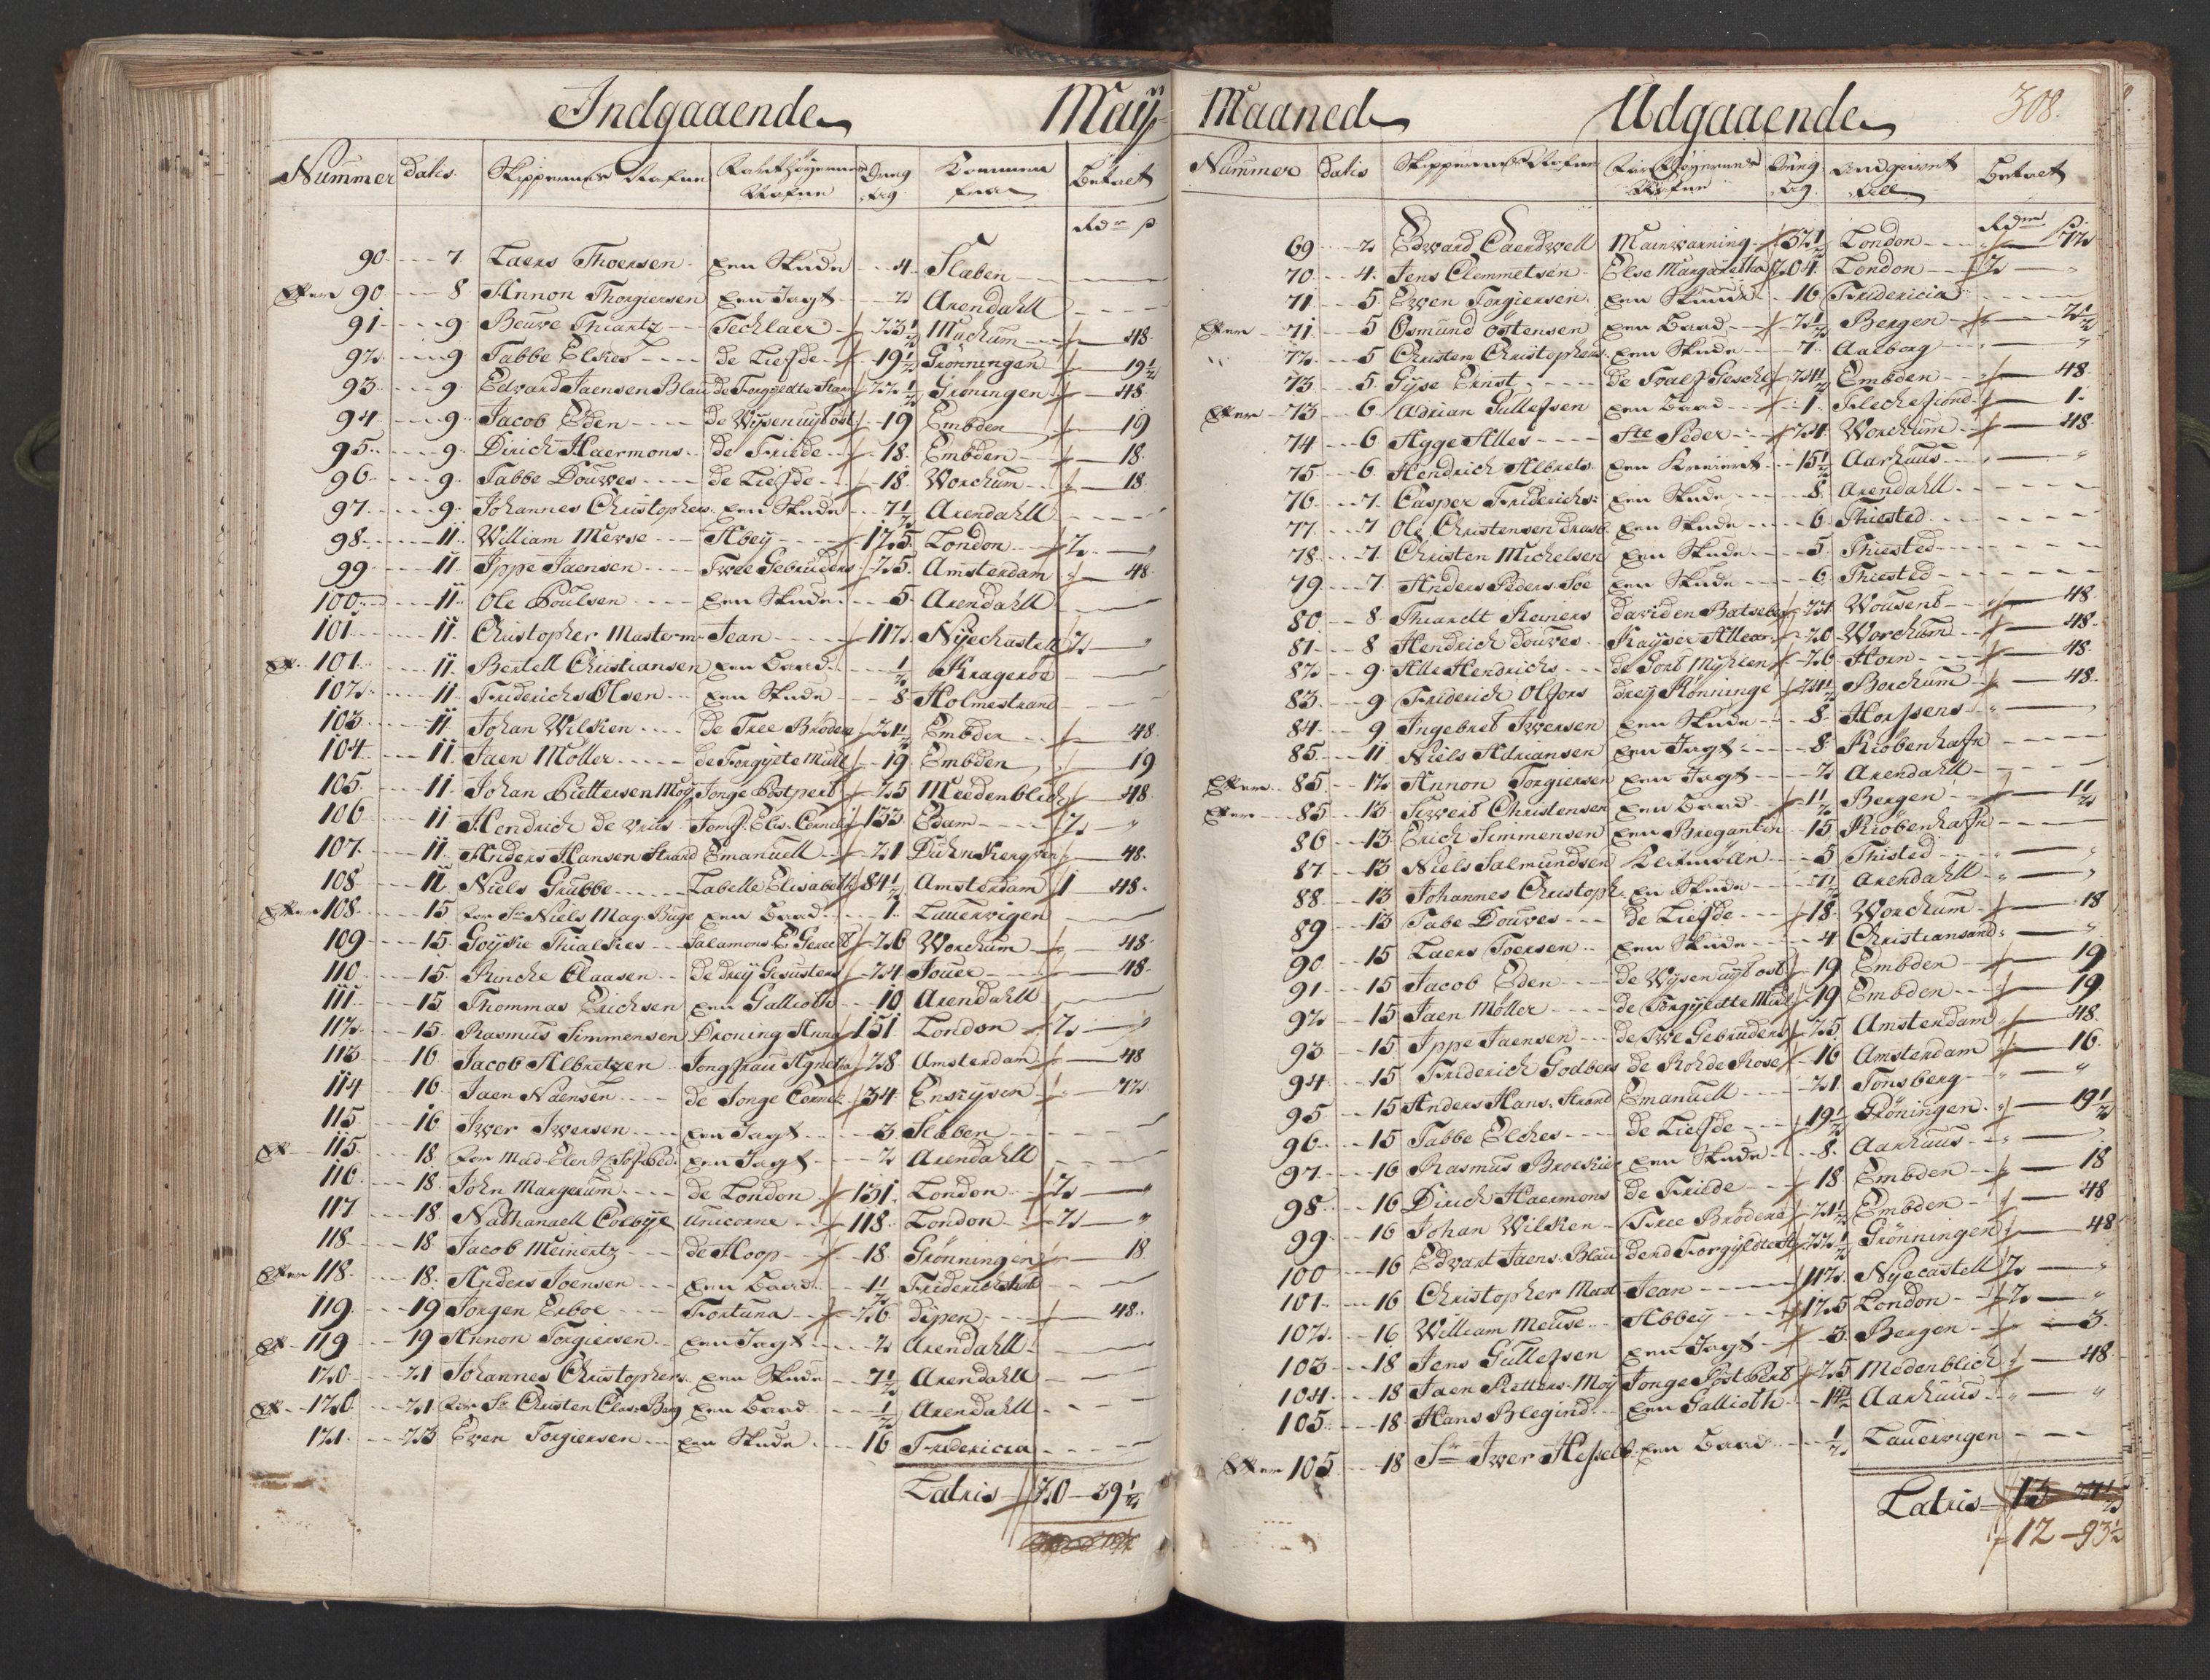 Indgaaende Maij
Nummer datis Skippernes Nafne Fartöyernes Nafne Dregtig Kommen fra Betalt
Rdr ß
90 7 Laers Thoersen Een Skude 4 Flaben
Efter 90 8 Annon Thorgiersen Een Jagt 2 Arendahll
91 9 Beuve Thiantz Techlaer 23½ Machum 48
92 9 Tabbe Elkes de Liefde 19½ Grønningen 19½
93 9 Edvard Jaensen Blau de Forgyldte 22½ Grøningen 48
94 9 Jacob Eden de Wysen uyt ost 19 Embden 19
95 9 Dirich Haermons de Friede 18 Embden 18
96 9 Tabbe Douwes de Liefde 18 Worchum 18
97 9 Johannes Christophers Een Skude 7½ Arendahll
98 11 William Merse Abey 125 London 2 "
99 11 Ippe Jaensen Twee Gebruders 25 Amsterdam 48
100 11 Ole Poulsen Een Skude 5 Arendahll
101 11 Christopher Masterm Jean 112 Nyechastell 2 "
Eft 101 11 Bertell Christiansen Een Baad ½ Kragerøe
102 11 Friderichs Olsen Een Skude 8 Holmestrand
103 11 Johan Wilsken de Tree Brødere 21½ Embden 48
104 11 Jaen Møller de Forgyete Mull 19 Embden 19
105 11 Johan Piettersen Moy Jonge Postpert 25 Meedenblich 48
106 11 Hendrich de Vriis Jomf. Elis. Cornelis 133 Edam 2 "
107 11 Anders Hansen Strand Emanuell 21 Duhnkergen 48
108 11 Niels Grubbe Labelle Elisabeth 84½ Amsterdam 1 48
Efter 108 15 for Sr Niels Mag. Buge Een Baad 1 Lauervigen
109 15 Goyske Thialkes Salamons E Gerecht 26 Worchum 48
110 15 Rinche Claasen De drey Gesusters 24 Jouer 48
111 15 Thommas Erichsen Een Gallioth 10 Arendahll
112 15 Rasmus Simmensen Droning Anna 151 London 2 "
113 16 Jacob Albretzen Jongfrau Agnetha 28 Amsterdam 48
114 16 Jaen Naensen de Jonge Cornel 34 Enkysen 72
115 16 Iwer Iwersen Een Jagt 3 Flaben
Eft 115 18 for Mad. Elen Een Jagt 2 Arendahll
116 18 John Margerum de London 131 London 2 "
117 18 Nathanaell Colbye Unicorne 118 London 2 "
118 18 Jacob Meinertz de Hoop 18 Grønningen 18
Efter 118 18 Anders Joensen Een Baad 1½ Friderichstad
119 19 Jørgen Erboe Fortuna 26 dypen 48
Eft 119 19 Annon Torgiersen Een Jagt 2 Arendahll
120 21 Johannes Christophers Een Skude 7½ Arendahll
Eft 120 21 for Sr Christen Clas. Berg Een Baad ½ Arendahll
121 23 Even Torgiersen Een Skude 16 Fridericia
Latris 20 39½
Maaned Udgaaende 308
Nummer datis Skippernes Nafne Fartöyernes Nafne Dregtig Andgivent till Betalt
Rdr ß
69 2 Edward Caerdwell Mainwarning 37½ London 72
70 4 Jens Clemmetsen Else Margaretha 204 London 2 "
71 5 Even Torgiersen Een Skuude 16 Fridericia
Efter 71 5 Osmund Östensen Een Baad 2½ Bergen 2½
72 5 Christen Christophers Een Skude 7 Aalborg "
73 5 Gyse Ernst de Twalf Gesch 24½ Embden 48
Efter 73 6 Adrian Gullefsen Een Baad 1 Flechefiord 1
74 6 Agge Alles Ste Peder 24 Worchum 48
75 6 Hendrich Albrets Een Kreiert 15½ Aarhuus "
76 7 Casper Friderichs Een Skude 8 Arendahll
77 7 Ole Christensen Een Skude 6 Thiested
78 7 Christen Michelsen Een Skude 5 Thiested
79 7 Anders Peders. Toe Een Skude 6 Thiested
80 8 Thiardt Reiners david en Batseba 21 Wousent 48
81 8 Hendrich douwes Kayser Allear 20 Worchum 48
82 9 Alle Hendrichs de Sont Myhlen 26 Horn 48
83 9 Friderich Olfers drey Kønninge 24½ Borchum 48
84 9 Ingebret Iwersen Een Skude 8 Horssens
85 11 Niels Adriansen Een Jagt 8 Kiøbenhafn
Efter 85 12 Annon Torgiersen Een Jagt 2 Arendahll
Efter 85 13 Siwert Christensen Een Baad 1½ Bergen 1½
86 13 Erich Simmensen Een Bregantin 15 Kiøbenhafn
87 13 Niels Salmundsen 5 Thisted "
88 13 Johannes Christoph. En Skude 7½ Arendahll "
89 13 Tabe Douwes de Liefde 18 Worchum 18
90 15 Laers Toersen Een Skude 4 Christiansand "
91 15 Jacob Eden de Wysen uyt ost 19 Embden 19
92 15 Jaen Møller de Forgyldte Mull 19 Embden 19
93 15 Ippe Jaensen de Twe Gebruders 25 Amsterdam 48
94 15 Friderich Godbers de Rohde Rose 16 Amsterdam 16
95 15 Anders Hans. Strand Emanuell 21 Tønsberg "
96 15 Tabbe Elches de Liefde 19½ Grøningen 19½
97 16 Rasmus Broeskier Een Skude 8 Aarhuus "
98 16 Dirich Haermons de Friede 18 Embden 18
99 16 Johan Wilsken Tree Brødere 21½ Embden 48
100 16 Edvart Jaens. Blau dend Forgyldte 22½ Grønningen 48
101 16 Christopher Mast Jean 112 Nyecastell 2 "
102 16 William Meuse Abbey 125 London 2 "
103 18 Jens Gullefsen Een Jagt 3 Bergen 3
104 18 Jaen Pietters. Moy Jonge Post Pert 25 Medenblich 48
105 18 Hans Blegind Een Gallioth 14½ Aarhuus "
Efter 105 18 Sr Iwer Hesselb. Een Baad ½ Lauervigen
Latris 13 21½
12 93½